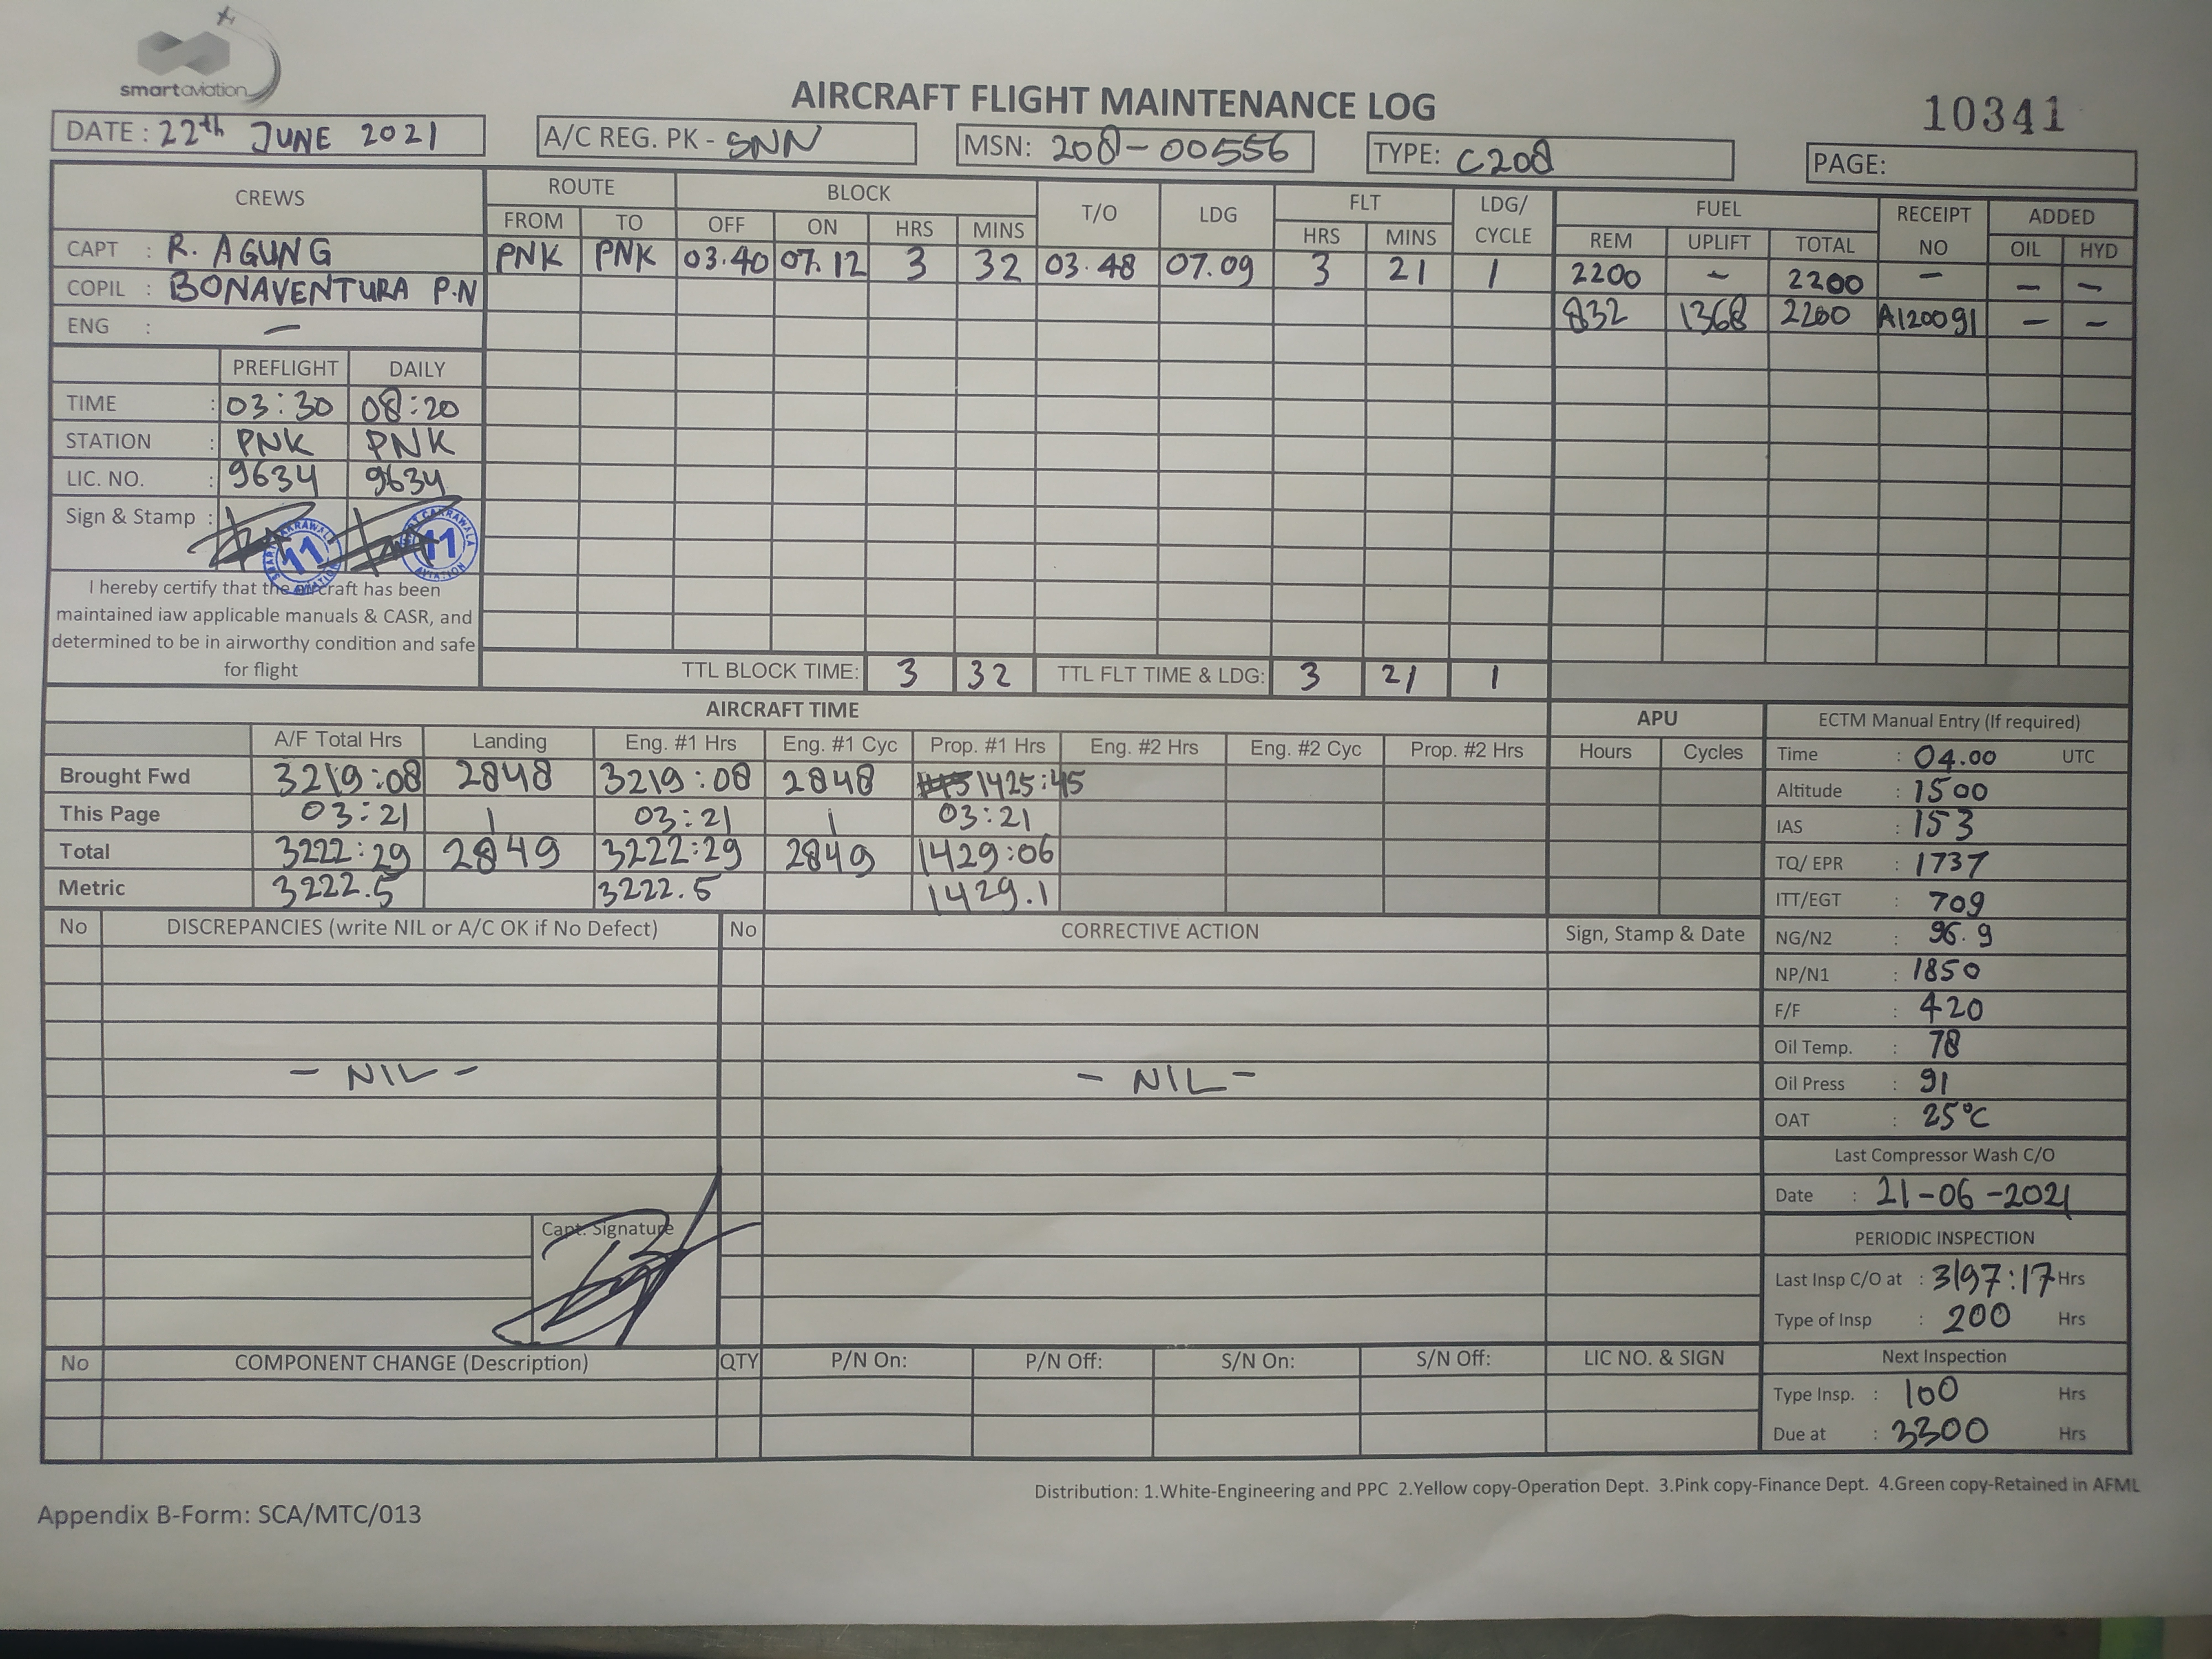 smartaviation
AIRCRAFT FLIGHT MAINTENANCE LOG
10341
DATE : 22th JUNE 2021 A/C REG. PK - SNN MSN: 208-00556 TYPE: C208 PAGE:
CREWS ROUTE BLOCK T/O LDG FLT LDG/ CYCLE FUEL RECEIPT NO ADDED
FROM TO OFF ON HRS MINS HRS MINS REM UPLIFT TOTAL OIL HYD
CAPT : R. AGUNG PNK PNK 03.40 07.12 3 32 03.48 07.09 3 21 1 2200 - 2200 - - -
COPIL : BONAVENTURA P.N 832 1368 2200 A120091 - -
ENG : -
PREFLIGHT DAILY
TIME : 03:30 08:20
STATION : PNK PNK
LIC. NO. : 9634 9634
Sign & Stamp :
11 11
I hereby certify that the aircraft has been
maintained iaw applicable manuals & CASR, and
determined to be in airworthy condition and safe
for flight
TTL BLOCK TIME: 3 32 TTL FLT TIME & LDG: 3 21 1
AIRCRAFT TIME APU
A/F Total Hrs Landing Eng. #1 Hrs Eng. #1 Cyc Prop. #1 Hrs Eng. #2 Hrs Eng. #2 Cyc Prop. #2 Hrs Hours Cycles
Brought Fwd 3219:08 2848 3219:08 2848 1425:45
This Page 03:21 1 03:21 1 03:21
Total 3222:29 2849 3222:29 2849 1429:06
Metric 3222.5 3222.5 1429.1
ECTM Manual Entry (If required)
Time : 04.00 UTC
Altitude : 1500
IAS : 153
TQ/ EPR : 1737
ITT/EGT : 709
NG/N2 : 96.9
NP/N1 : 1850
F/F : 420
Oil Temp. : 78
Oil Press : 91
OAT : 25°C
Last Compressor Wash C/O
Date : 21-06-2021
PERIODIC INSPECTION
Last Insp C/O at : 3197:17 Hrs
Type of Insp : 200 Hrs
Next Inspection
Type Insp. : 100 Hrs
Due at : 3300 Hrs
No DISCREPANCIES (write NIL or A/C OK if No Defect) No CORRECTIVE ACTION Sign, Stamp & Date
- NIL - - NIL -
Capt. Signature
No COMPONENT CHANGE (Description) QTY P/N On: P/N Off: S/N On: S/N Off: LIC NO. & SIGN
Distribution: 1.White-Engineering and PPC 2.Yellow copy-Operation Dept. 3.Pink copy-Finance Dept. 4.Green copy-Retained in AFML
Appendix B-Form: SCA/MTC/013